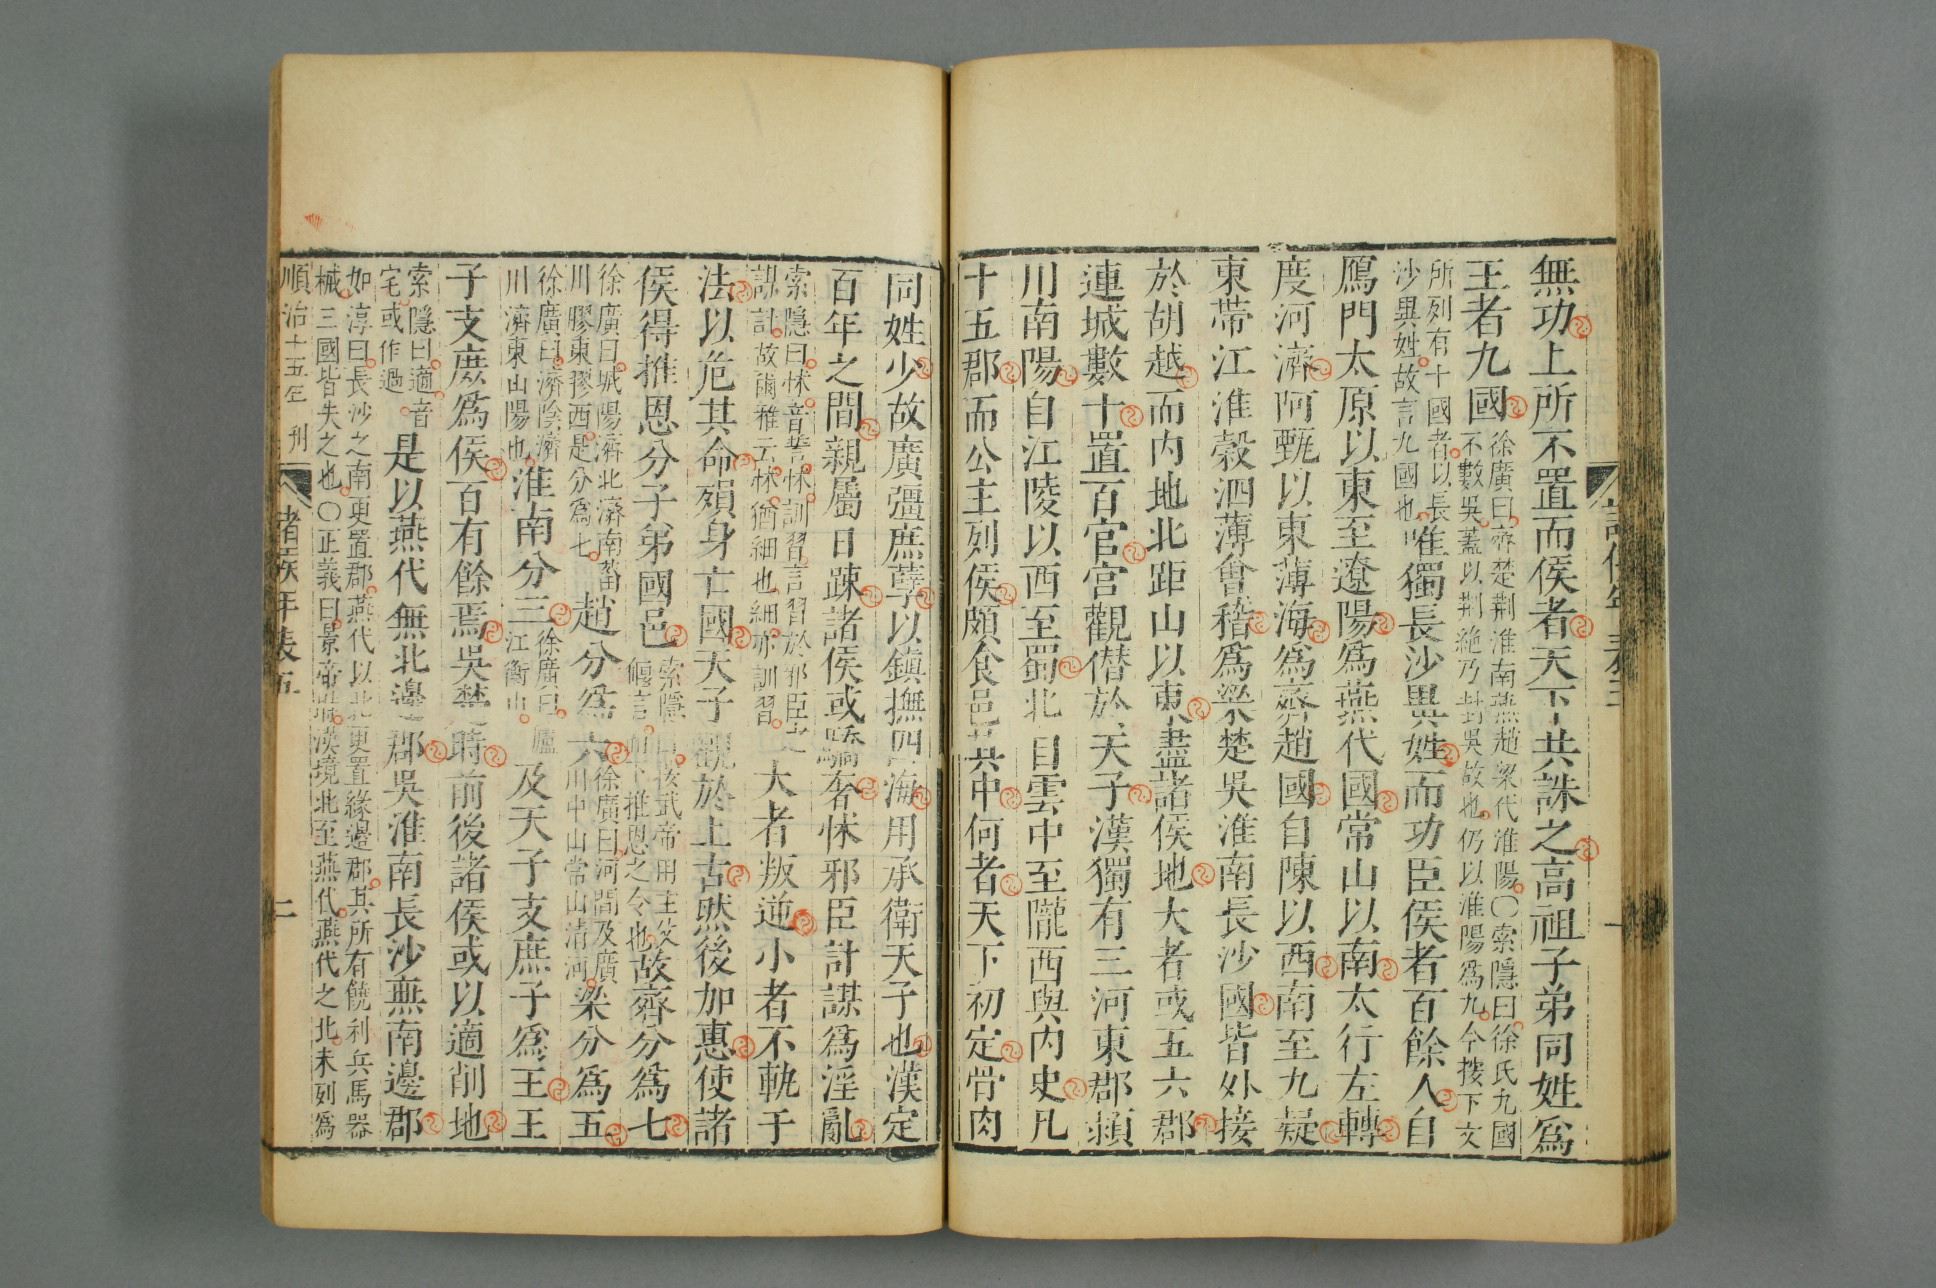 無功上所不置而侯者天下共誅之高祖子弟同姓爲
王者九國徐廣曰齊楚荆淮南燕趙梁代淮陽○索隱曰徐氏九國不數吳蓋以荆絶乃封吳故也仍以淮陽爲九今按下文
所列有十國者以長沙異姓故言九國也唯獨長沙異姓而功臣侯者百餘人自
鴈門太原以東至遼陽爲燕代國常山以南太行左轉
度河濟阿甄以東薄海爲齊趙國自陳以西南至九疑
東帶江淮穀泗薄會稽爲梁楚吳淮南長沙國皆外接
於胡越而内地北距山以東盡諸侯地大者或五六郡
連城數十置百官宫觀僭於天子漢獨有三河東郡潁
川南陽自江陵以西至蜀北自雲中至隴西與内史凡
十五郡而公主列侯頗食邑其中何者天下初定骨肉
同姓少故廣彊庶孽以鎭撫四海用承衛天子也漢定
百年之間親屬日疎諸侯或驕奢忕邪臣計謀爲淫亂
索隱曰忕音誓忕訓習言習於邪臣之謀計故爾雅云忕猶細也細亦訓習大者叛逆小者不軌于
法以危其命殞身亡國天子觀於上古然後加惠使諸
侯得推恩分子弟國邑索隱曰按武帝用主父偃言而下推恩之令也故齊分爲七
徐廣曰城陽濟北濟南菑川膠東膠西是分爲七趙分爲六徐廣曰河間及廣川中山常山清河梁分爲五
徐廣曰濟陰濟川濟東山陽也淮南分三徐廣曰廬江衡山及天子支庶子爲王王
子支庶爲侯百有餘焉吳楚時前後諸侯或以適削地
索隱曰適音宅或作過是以燕代無北邊郡吳淮南長沙無南邊郡
如淳曰長沙之南更置郡燕代以北更置緣邊郡其所有饒利兵馬器械三國皆失之也○正義曰景帝時漢境北至燕代燕代之北未列爲
順治十五年刋 諸侯年表五 二